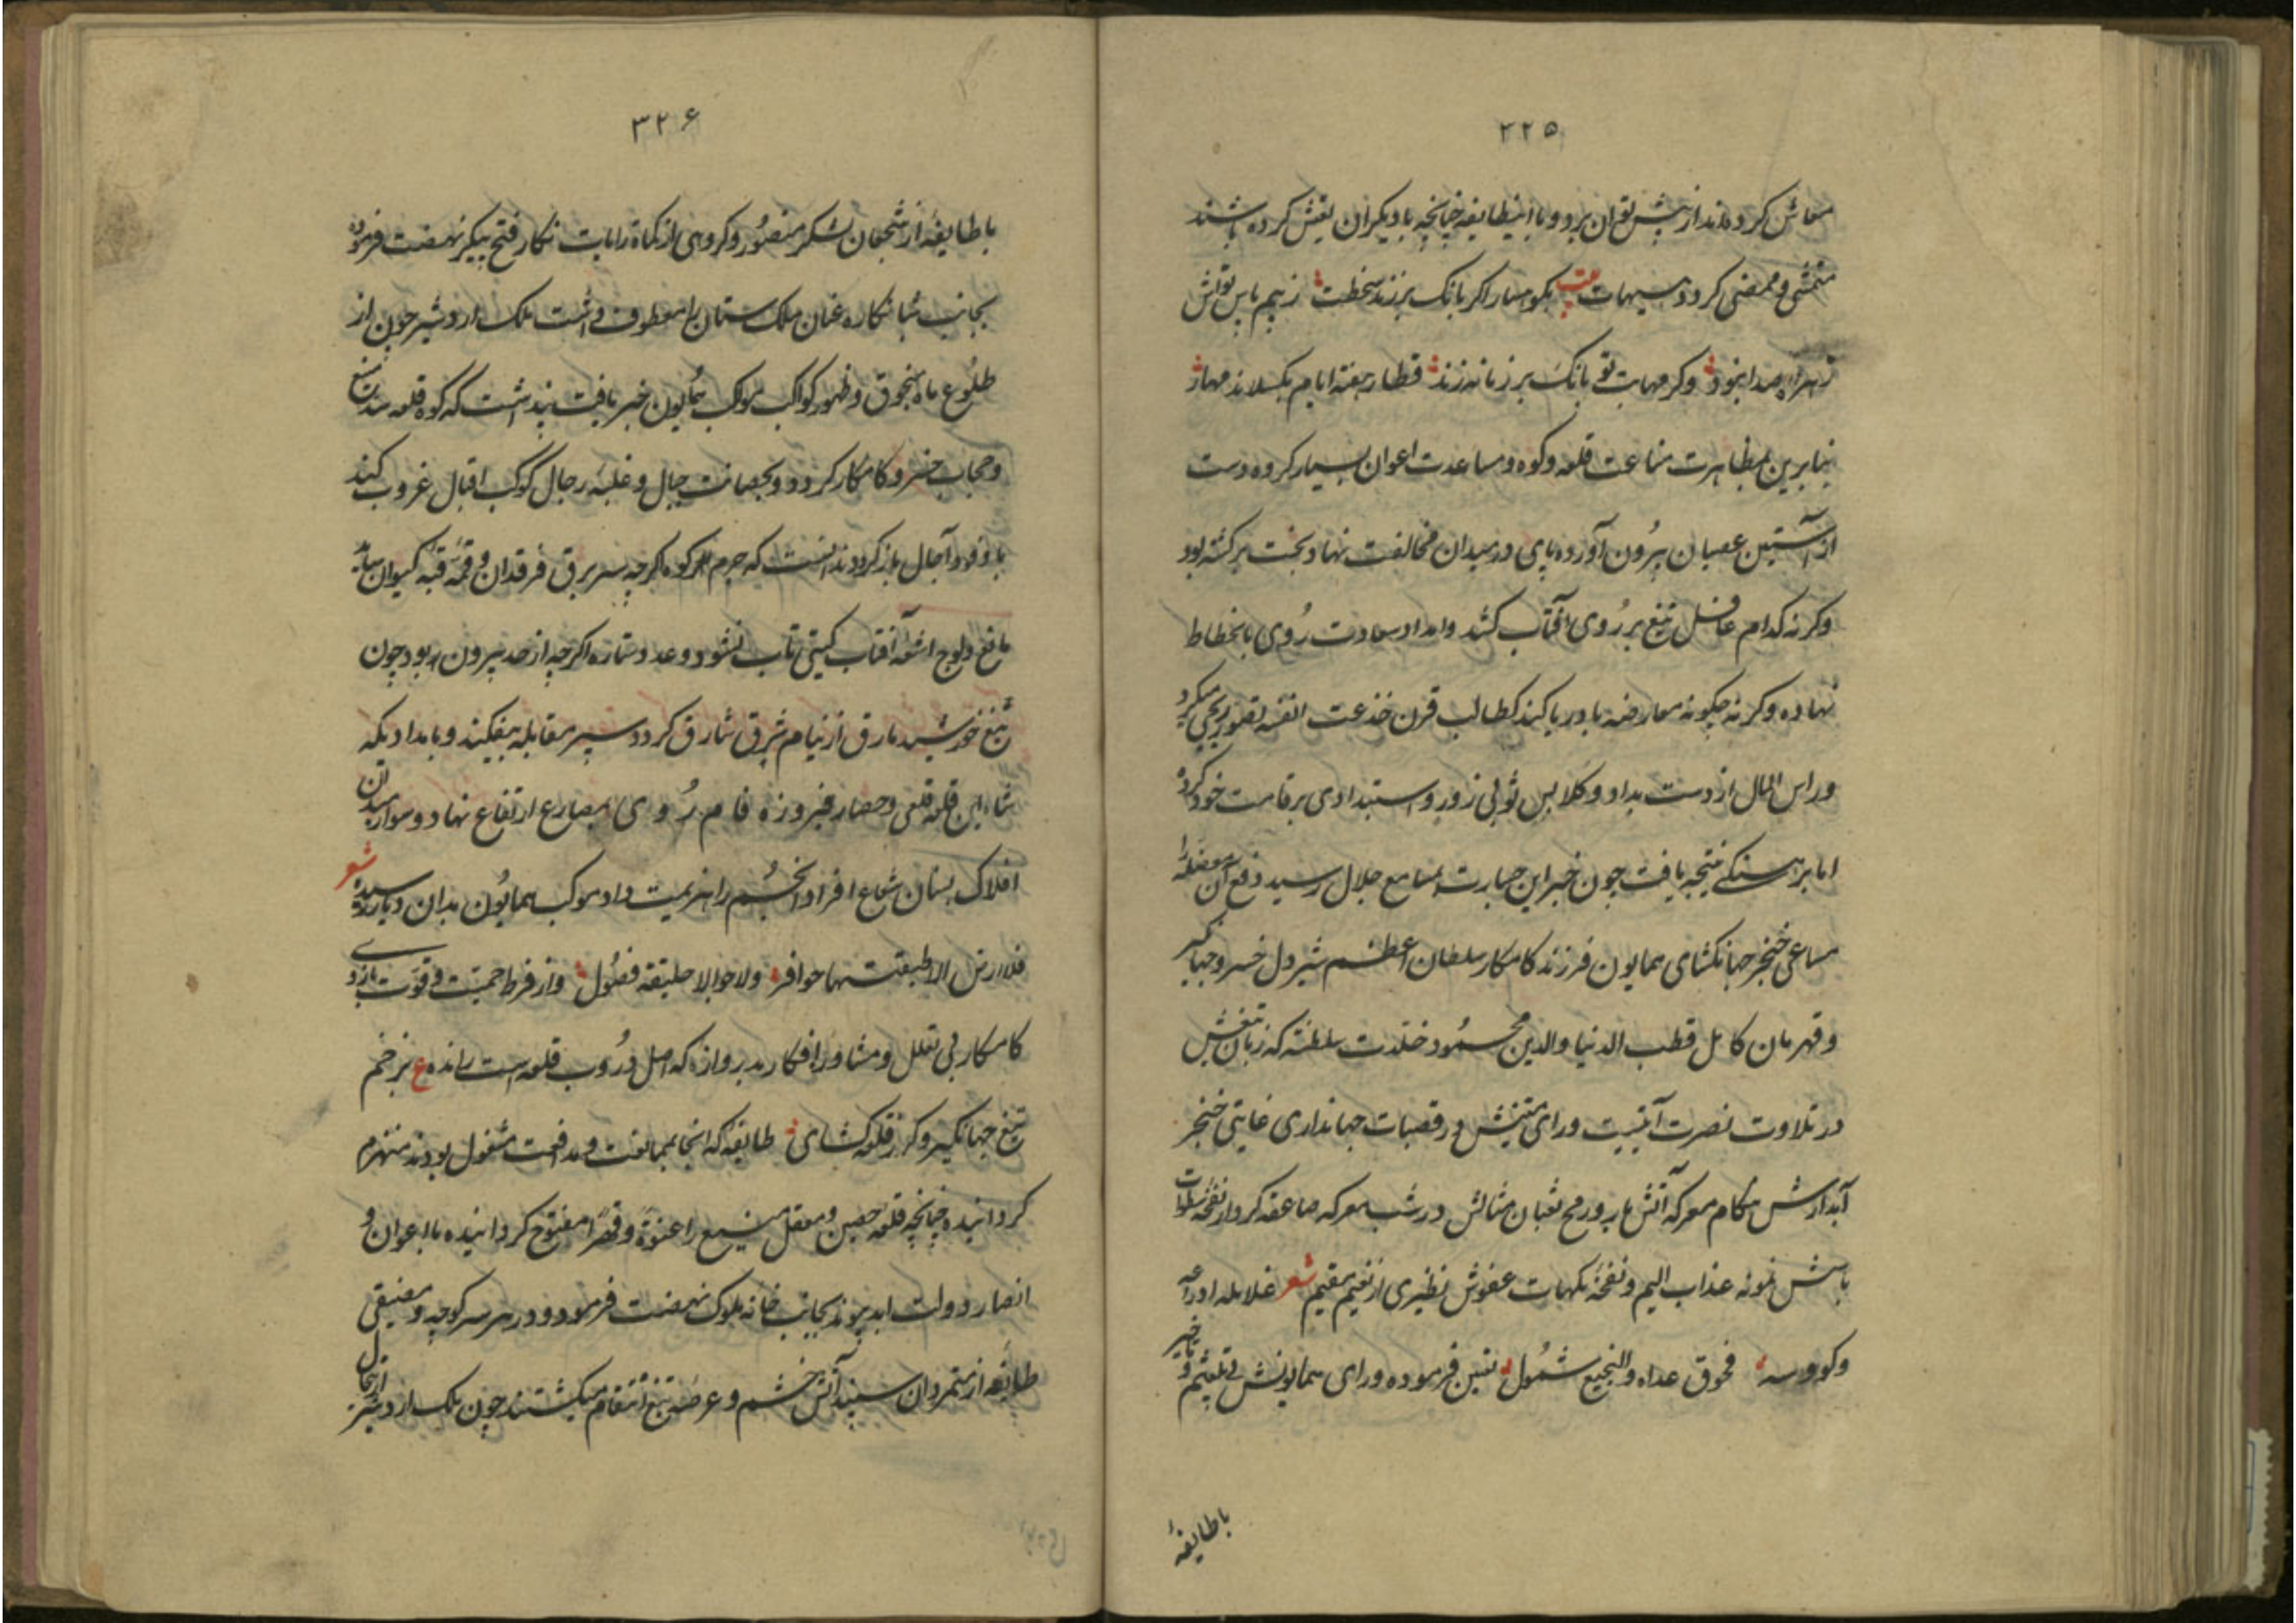 ۲۲۵
معاش کرده‌اند از پیش توان برد و با اینطایفه چنانچه با دیگران تعیش کرده باشند
متمشی و ممضی کردد هیهات بیت بکوهسار اکر بانک برزند سخطت ز بیم پاس تواش
زهره صدا نبود وکر مهابت تو بانک بر زمانه زند قطار هفته ایام بکسلاند مهار
بنابرین بمظاهرت مناعت قلعه و کوه و مساعدت اعوان بسیار کروه دست
از آستین عصیان بیرون آورده پای در میدان مخالفت نهاد و بخت برکشته بود
وکرنه کدام عاقل تیغ بر روی آفتاب کشد و امداد سعادت روی بانحطاط
نهاده وکرنه چکونه معارضه با دریا کند کطالب قرن خذعت انفه تصور ربحی میکرد
و راس المال از دست بداد و کلابس ثوبی زور و استبدادی بر قامت خود کرد
اما برهنکی نتیجه یافت چون خبر این جسارت بمسامع جلال رسید دفع آن معضله را
مساعی خنجر جهانکشای همایون فرزند کامکار سلطان اعظم شیردل خسرو جهانکیر
و قهرمان کامل قطب الدنیا والدین محمود خلدت سلطنته که زبان تیغش
در تلاوت نصرت آیتیست و رای متینش در قصبات جهانداری غایتی خنجر
آبدارش هنکام معرکه آتش بار و رمح ثعبان مثالش در شب معرکه صاعقه کردار نفخه سطوات
باسش نمونه عذاب الیم و نفحه نکهات عفوش نظیری از نعیم مقیم شعر غلایله ادراعه
وکووسه فحوق عداه والنجیع شمول تعیین فرموده و رای همایونش بی تلعثم و تاخیر
با طایفهٔ
۳۲۶
با طایفهٔ از شجعان لشکر منصور و کروهی از کماة رایات نکار فتح پیکر نهضت فرموده
بجانب شبانکاره عنان ملک ستان را معطوف داشت ملک اردشیر چون از
طلوع ماه سنجوق و ظهور کواکب موکب همایون خبر یافت پنداشت که کوه قلعه سد منیع
و حجاب خسرو کامکار کردد و بحصانت جبال و غلبه رجال کوکب اقبال غروب کند
با وفود آجال باز کردد ندانست که جرم کوه اکرچه سر برق فرقدان و قمه قبه کیوان ساید
مانع ولوج اشعه آفتاب کیتی تاب نشود و عدد ستاره اکرچه از حد بیرون بود چون
تیغ خورشید بارق از نیام شرق شارق کردد سپر مقابله بیفکند و بامداد یکه
شاه این قلعه قلعی و حصار فیروزه فام روی بمصارع ارتفاع نهاد و سوار میدان
افلاک بسنان شعاع افراد انجم را هزیمت داد موکب همایون بدان دیار رسیده شعر
فلا ارض الا طبقتها حوافر ولا جو الا حلیقته فضول و از فرط حمیت و قوت بازوی
کامکار بی تعلل و مشاور افکار بدروازه که اصل دروب قلعه است رانده ع بزخم
تیغ جهانکیر و کرز قلعه کشای طایفه که انجا بممانعت و مدافعت مشغول بودند منهزم
کردانیده چنانچه قلعه حصین و معقل منیع را عنوة و قهرا مفتوح کردانیده با اعوان و
انصار دولت ابد پیوند بجانب خانه ملوک نهضت فرمود و در هر سر کوچه و مضیقی
طایفه از متمردان سپند آتش خشم و عرضه تیغ انتقام میکشتند چون ملک اردشیر از انحال